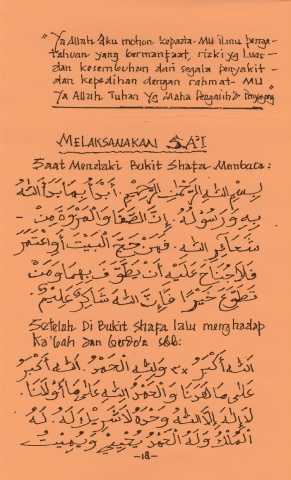 "Ya Allah Aku mohon kepada-MU ilmu penge-
tahuan yang bermanfaat, rizki yg luas
dan kesembuhan dari segala penyakit -
dan kepedihan dengan rahmat-MU
Ya Allah Tuhan Yg Maha Pengasih
MELAKSANAKAN SA'I
Saat Mendaki Bukit Shafa Membaca:
بِسْمِ اللهِ الرَّحْمٰنِ الرَّحِيْمِ. أَبْدَأُ بِمَا بَدَأَ اللهُ
بِهِ وَرَسُوْلُهُ. إِنَّ الصَّفَا وَالْمَرْوَةَ مِنْ -
شَعَائِرِ اللهِ. فَمَنْ حَجَّ الْبَيْتَ أَوِ اعْتَمَرَ
فَلَا جُنَاحَ عَلَيْهِ أَنْ يَطَّوَّفَ بِهِمَا وَمَنْ
تَطَوَّعَ خَيْرًا فَإِنَّ اللهَ شَاكِرٌ عَلِيْمٌ.
Setelah Di Bukit Shafa lalu menghadap
Ka'bah dan berdo'a sbb:
اَللهُ أَكْبَرُ ×٣ وَلِلّٰهِ الْحَمْدُ. اَللهُ أَكْبَرُ
عَلَى مَا هَدَانَا وَالْحَمْدُ لِلّٰهِ عَلَى مَا أَوْلَانَا.
لَا إِلٰهَ إِلَّا اللهُ وَحْدَهُ لَا شَرِيْكَ لَهُ. لَهُ
الْمُلْكُ وَلَهُ الْحَمْدُ يُحْيِيْ وَيُمِيْتُ
-18-